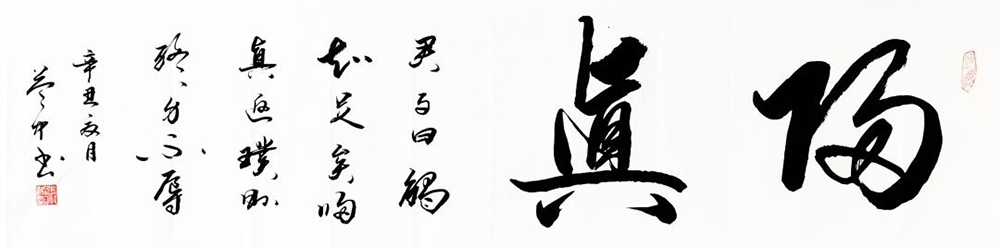 歸真
君子曰斶
知足矣歸
真返璞則
終身不辱
辛丑夏月